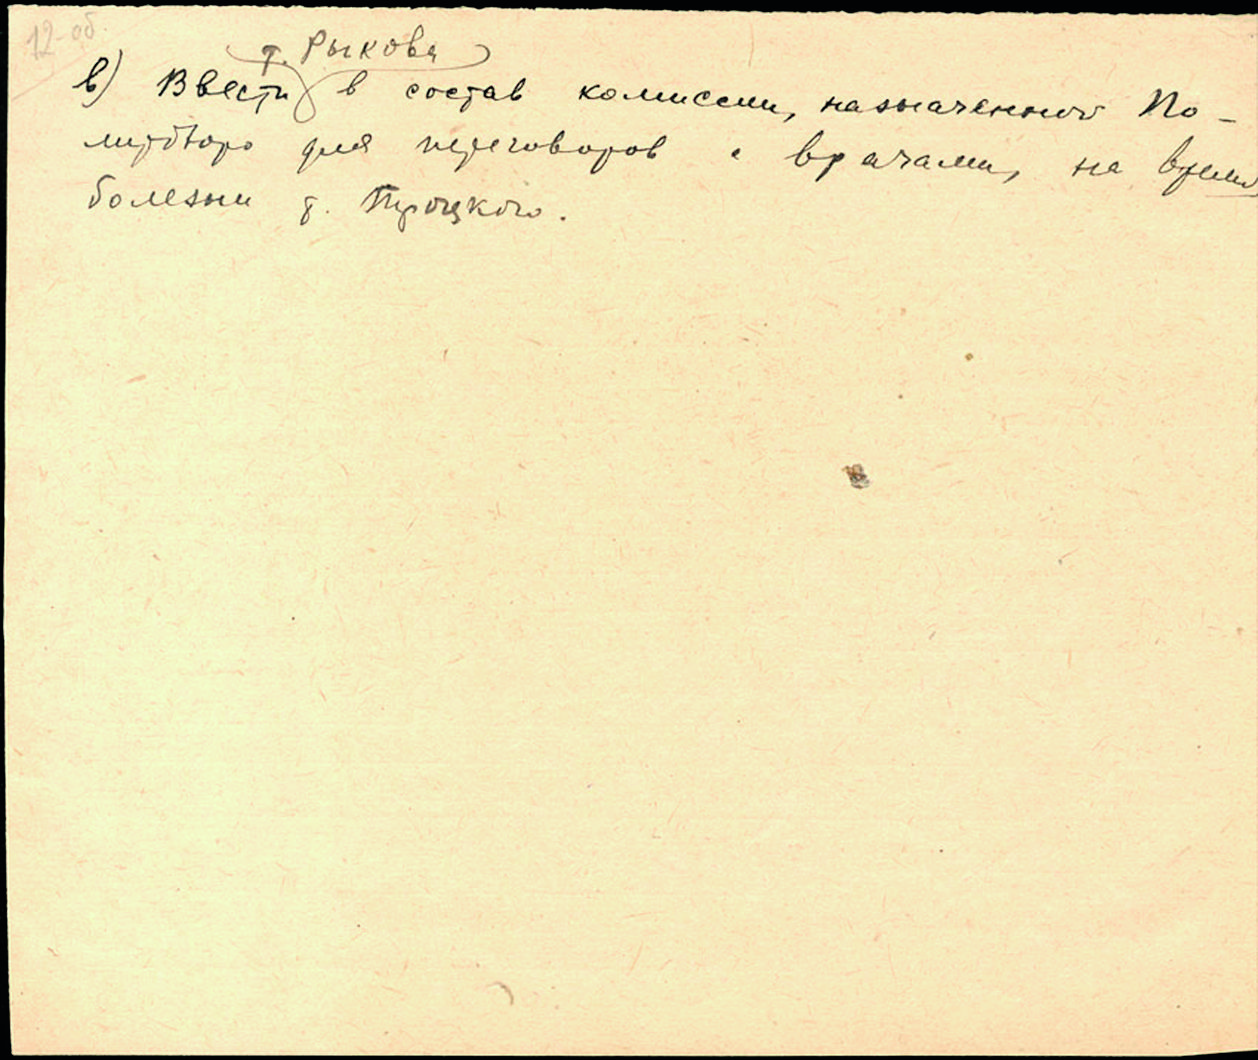 12-об
т. Рыкова
в) Ввести в состав комиссии, назначенной По-
литбюро для переговоров с врачами, на время
болезни т. Троцкого.